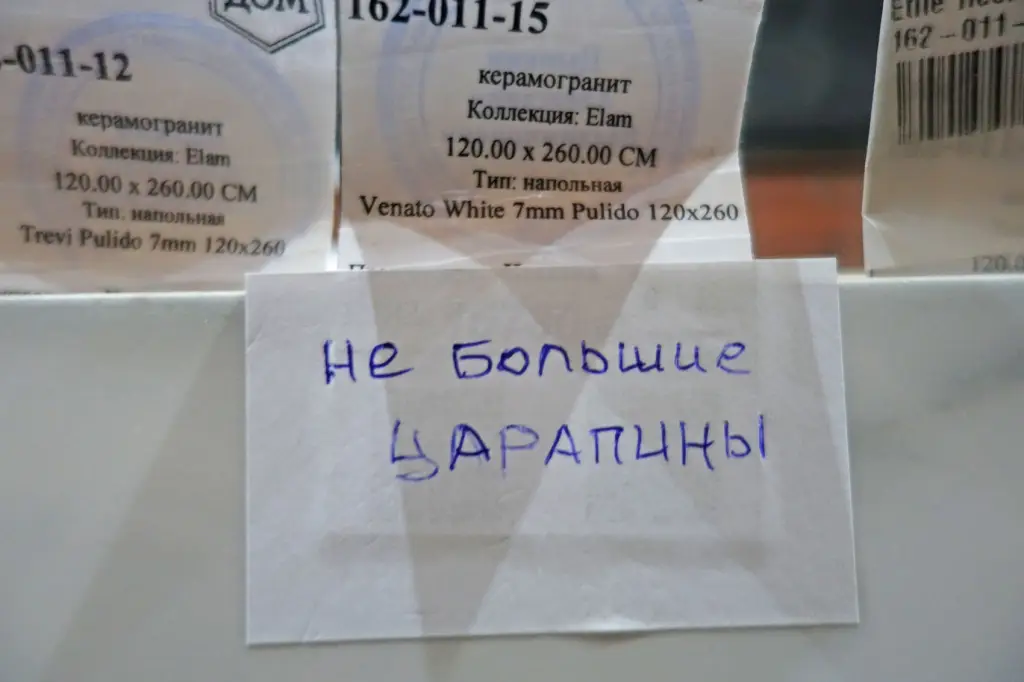 ДОМ
-011-12
керамогранит
Коллекция: Elam
120.00 x 260.00 СМ
Тип: напольная
Trevi Pulido 7mm 120x260
162-011-15
керамогранит
Коллекция: Elam
120.00 x 260.00 СМ
Тип: напольная
Venato White 7mm Pulido 120x260
162-011-
120.0
не большие
царапины